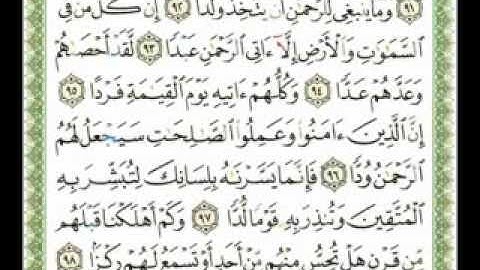 ٩١ وَمَا يَنۢبَغِى لِلرَّحۡمَٰنِ أَن يَتَّخِذَ وَلَدًا ٩٢ إِن كُلُّ مَن فِى
ٱلسَّمَٰوَٰتِ وَٱلۡأَرۡضِ إِلَّآ ءَاتِى ٱلرَّحۡمَٰنِ عَبۡدًا ٩٣ لَّقَدۡ أَحۡصَىٰهُمۡ
وَعَدَّهُمۡ عَدًّا ٩٤ وَكُلُّهُمۡ ءَاتِيهِ يَوۡمَ ٱلۡقِيَٰمَةِ فَرۡدًا ٩٥
إِنَّ ٱلَّذِينَ ءَامَنُوا۟ وَعَمِلُوا۟ ٱلصَّٰلِحَٰتِ سَيَجۡعَلُ لَهُمُ
ٱلرَّحۡمَٰنُ وُدًّا ٩٦ فَإِنَّمَا يَسَّرۡنَٰهُ بِلِسَانِكَ لِتُبَشِّرَ بِهِ
ٱلۡمُتَّقِينَ وَتُنذِرَ بِهِۦ قَوۡمًا لُّدًّا ٩٧ وَكَمۡ أَهۡلَكۡنَا قَبۡلَهُم
مِّن قَرۡنٍ هَلۡ تُحِسُّ مِنۡهُم مِّنۡ أَحَدٍ أَوۡ تَسۡمَعُ لَهُمۡ رِكۡزًۢا ٩٨